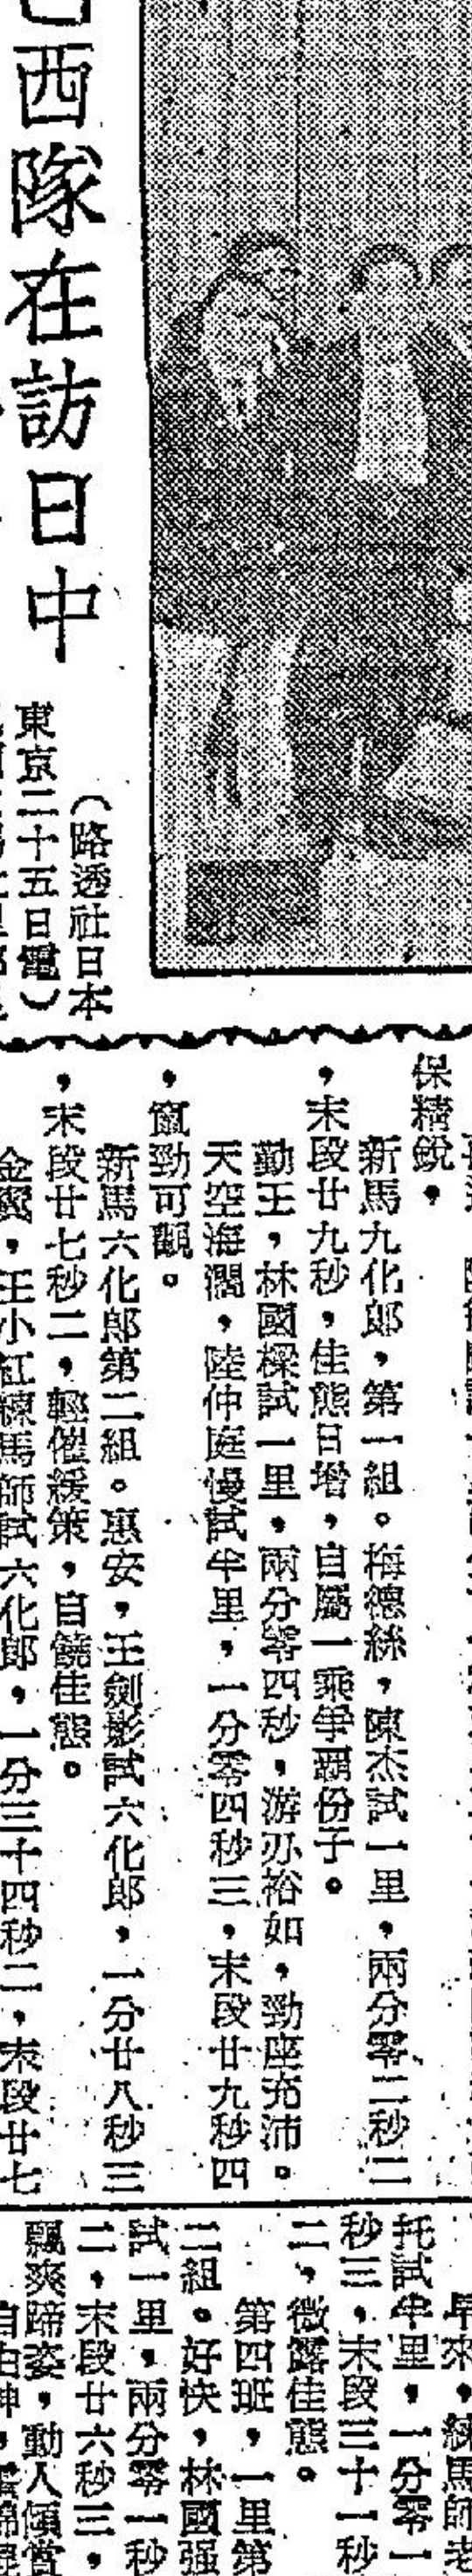 西隊在訪日中
（路透社日本
東京二十五日電）
保精銳。
新馬九化郎，第一組。梅德絲，陳杰試一里，兩分零二秒二
，末段廿九秒，佳態日增，自屬一乘爭覇份子。
勤王，林國樑試一里，兩分零四秒，游刃裕如，勁座充沛。
天空海濶，陸仲庭慢試半里，一分零四秒三，末段廿九秒四
，竄勁可觀。
新馬六化郎第二組。惠安，王劍影試六化郎，一分廿八秒三
，末段廿七秒二，輕催緩策，自饒佳態。
金翼，王小紅練馬師試六化郎，一分三十四秒二，末段廿七
早來，練馬師老
托試半里，一分零一
秒三，末段三十一秒
二，微露佳態。
第四班，一里第
二組。好快，林國强
試一里，兩分零一秒
二，末段廿六秒三，
飄爽蹄姿，動人傾賞
自由神，